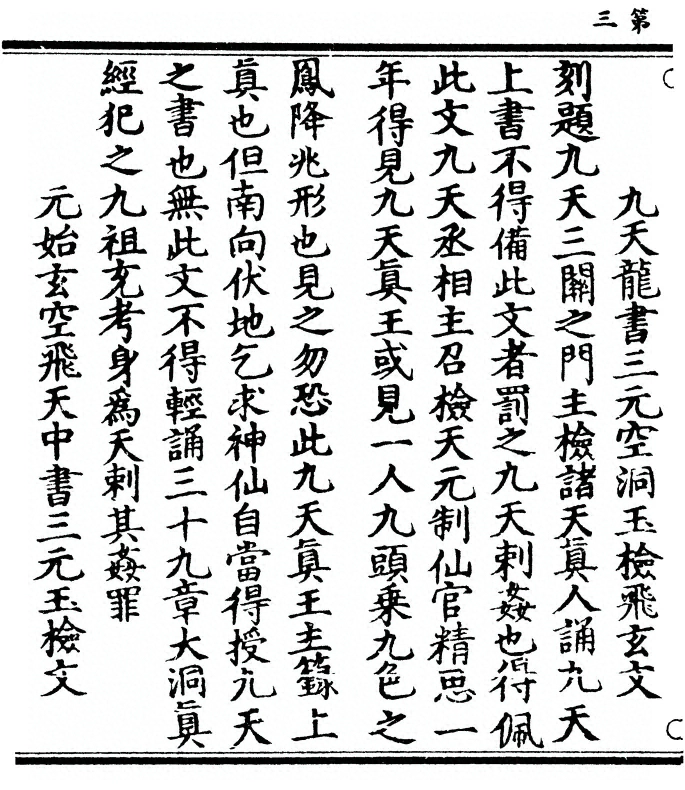 第三
九天龍書三元空洞玉檢飛玄文
刻題九天三關之門主檢諸天真人誦九天
上書不得備此文者罰之九天刺姦也得佩
此文九天丞相主召檢天元制仙官精思一
年得見九天真王或見一人九頭乗九色之
鳳降兆形也見之勿恐此九天真王主籙上
真也但南向伏地乞求神仙自當得授九天
之書也無此文不得輕誦三十九章大洞真
經犯之九祖充考身為天刺其姦罪
元始玄空飛天中書三元玉檢文